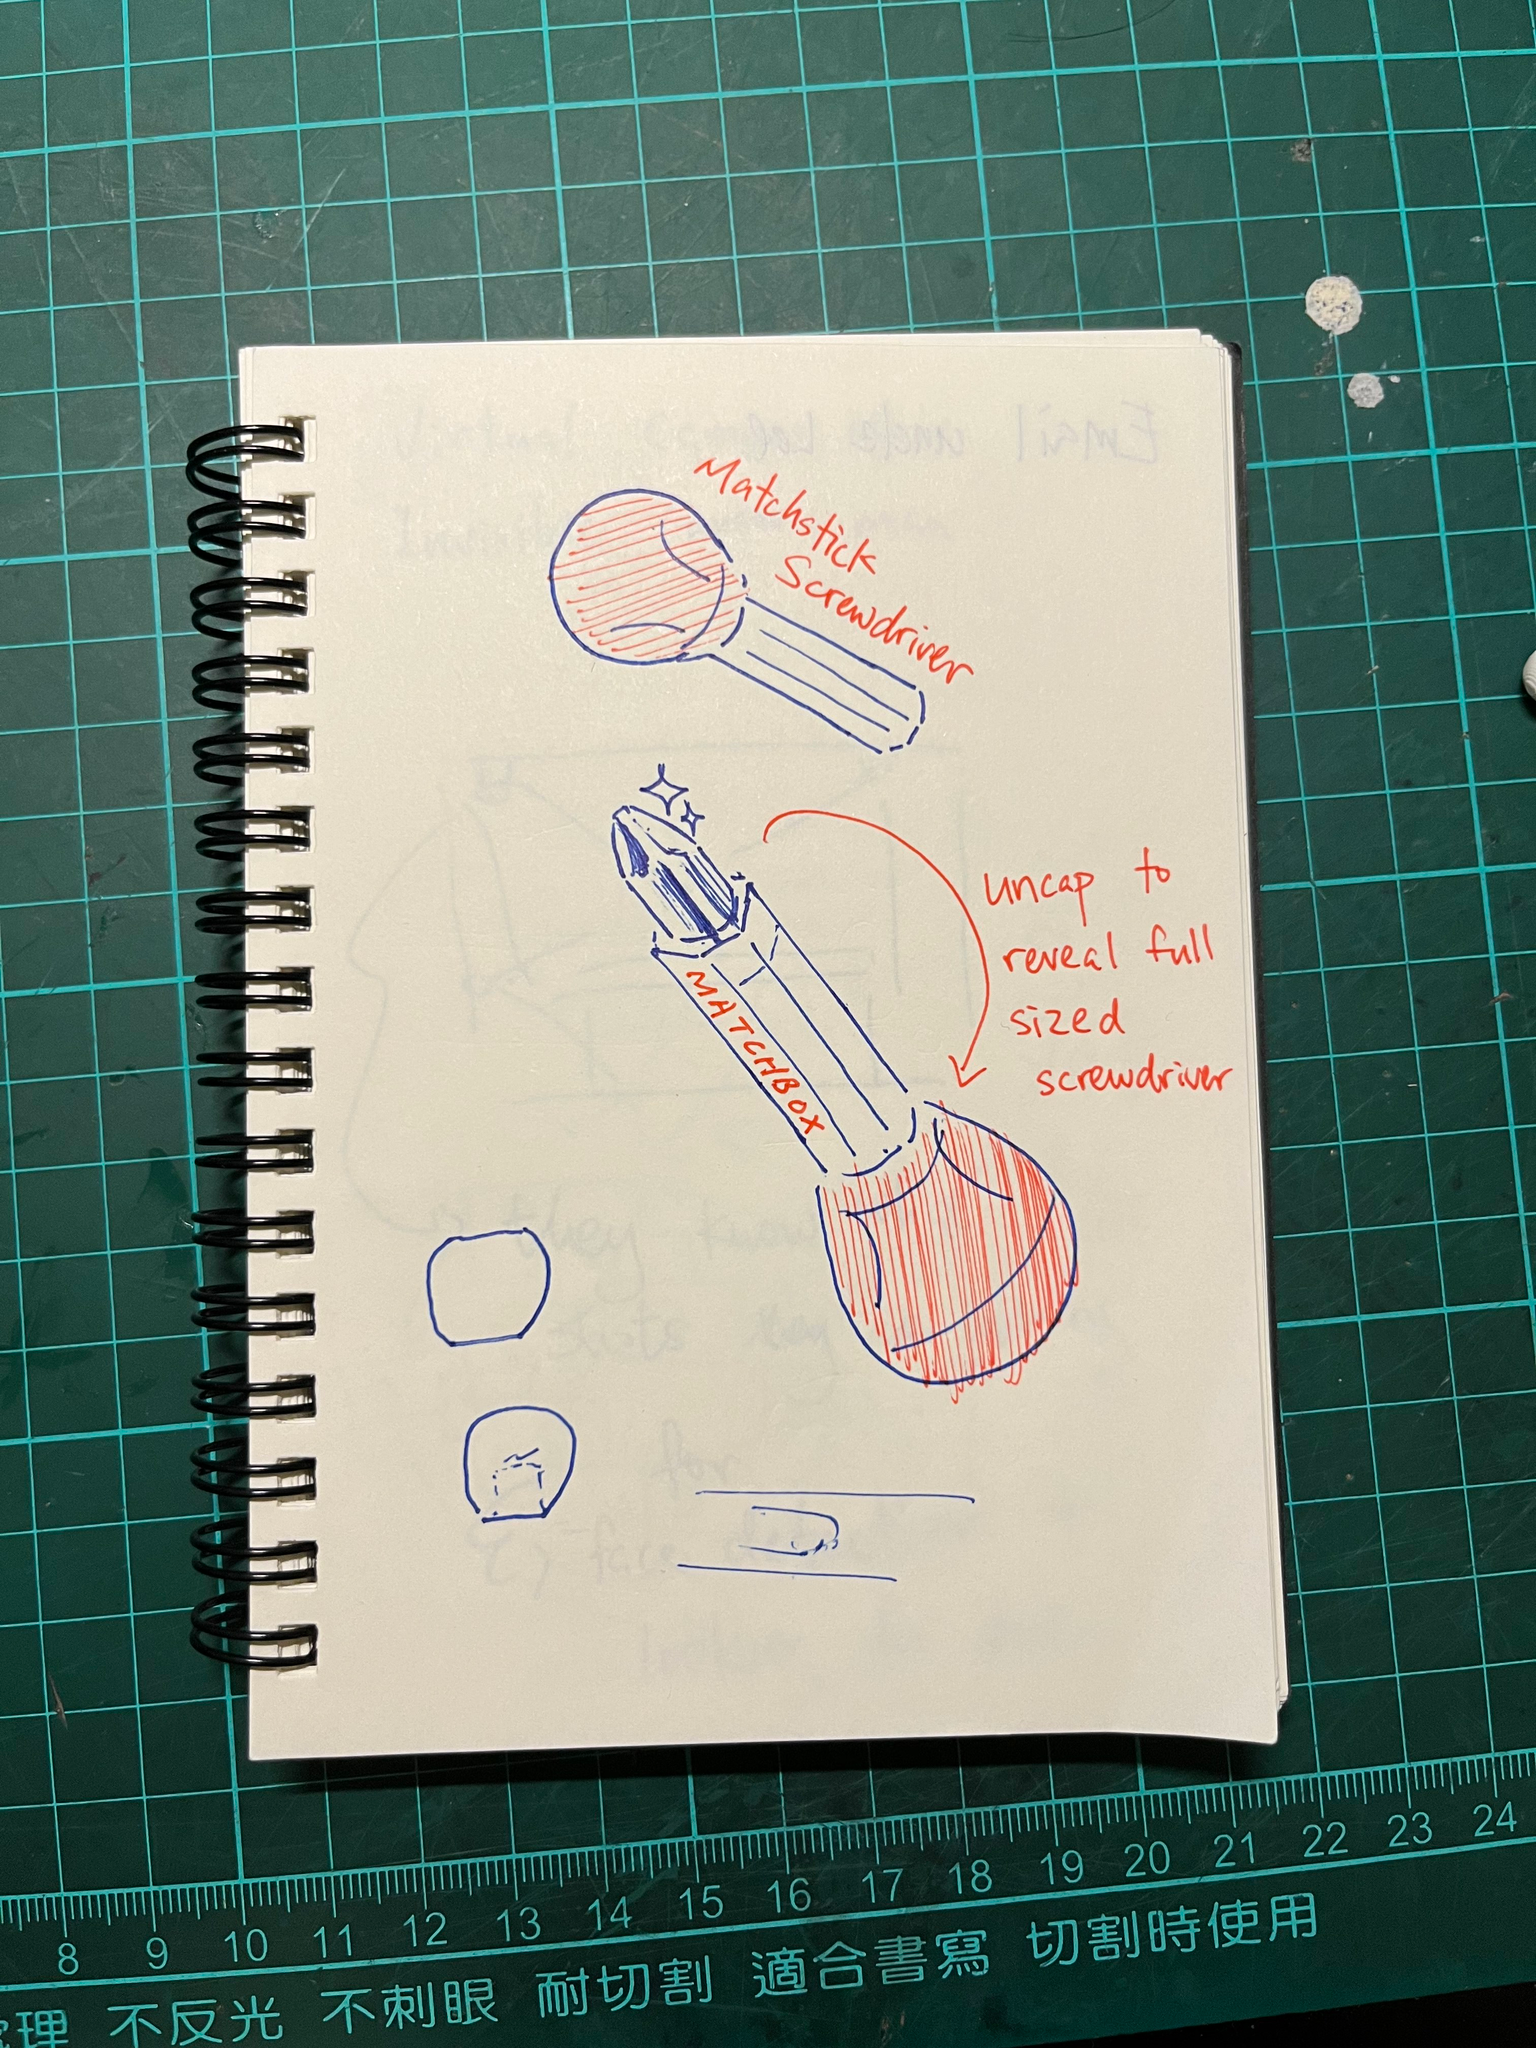 Matchstick
Screwdriver
uncap to
reveal full
sized
screwdriver
MATCHBOX
8 9 10 11 12 13 14 15 16 17 18 19 20 21 22 23 24
理 不反光 不刺眼 耐切割 適合書寫 切割時使用